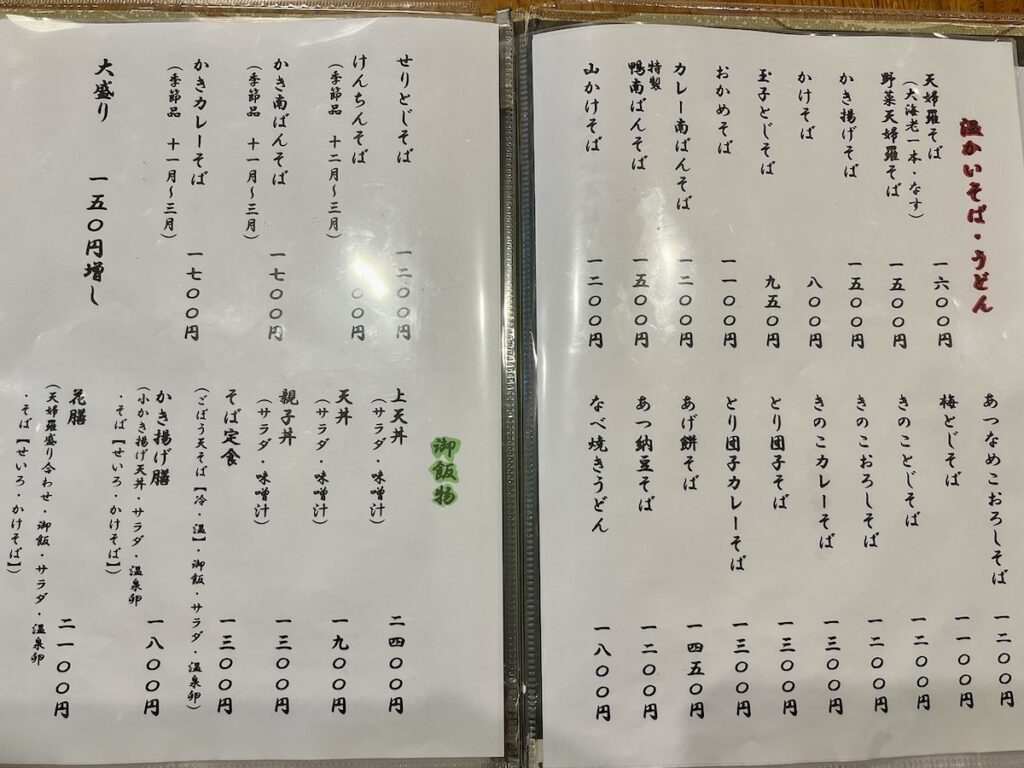 温かいそば・うどん
天婦羅そば 一六〇〇円
(大海老一本・なす)
野菜天婦羅そば 一五〇〇円
かき揚げそば 一五〇〇円
かけそば 八〇〇円
玉子とじそば 九五〇円
おかめそば 一一〇〇円
カレー南ばんそば 一二〇〇円
特製
鴨南ばんそば 一五〇〇円
山かけそば 一二〇〇円
あつなめこおろしそば 一二〇〇円
梅とじそば 一一〇〇円
きのことじそば 一二〇〇円
きのこおろしそば 一二〇〇円
きのこカレーそば 一三〇〇円
とり団子そば 一三〇〇円
とり団子カレーそば 一三〇〇円
あげ餅そば 一四五〇円
あつ納豆そば 一二〇〇円
なべ焼きうどん 一八〇〇円
せりとじそば 一二〇〇円
けんちんそば 〇〇円
(季節品 十二月〜三月)
かき南ばんそば 一七〇〇円
(季節品 十一月〜三月)
かきカレーそば 一七〇〇円
(季節品 十一月〜三月)
大盛り 一五〇円増し
御飯物
上天丼 二四〇〇円
(サラダ・味噌汁)
天丼 一九〇〇円
(サラダ・味噌汁)
親子丼 一三〇〇円
(サラダ・味噌汁)
そば定食 一三〇〇円
(ごぼう天そば【冷・温】・御飯・サラダ・温泉卵)
かき揚げ膳 一八〇〇円
(小かき揚げ天丼・サラダ・温泉卵
・そば【せいろ・かけそば】)
花膳 二一〇〇円
(天婦羅盛り合わせ・御飯・サラダ・温泉卵
・そば【せいろ・かけそば】)